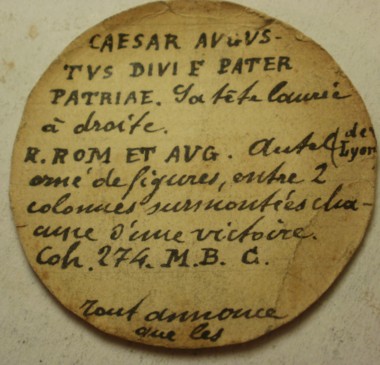 CAESAR AVGVS-
TVS DIVI F PATER
PATRIAE. Sa tête laurée
à droite.
R. ROM ET AVG. Autel (de Lyon
orné de figures, entre 2
colonnes surmontées cha-
cune d'une victoire.
Coh. 274. M.B. C.
Tout annonce
que les